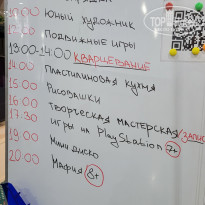 ЮНЫЙ ХУДОЖНИК
ПОДВИЖНЫЕ ИГРЫ
13:00-14:00 КВАРЦЕВАНИЕ
14:00 ПЛАСТИЛИНОВАЯ КУХНЯ
15:00 РИСОВАШКИ
16:00 ТВОРЧЕСКАЯ МАСТЕРСКАЯ/ЗАПИС
17:30 ИГРЫ НА PLAYSTATION 7+
19:00 МИНИ ДИСКО
20:00 МАФИЯ 8+